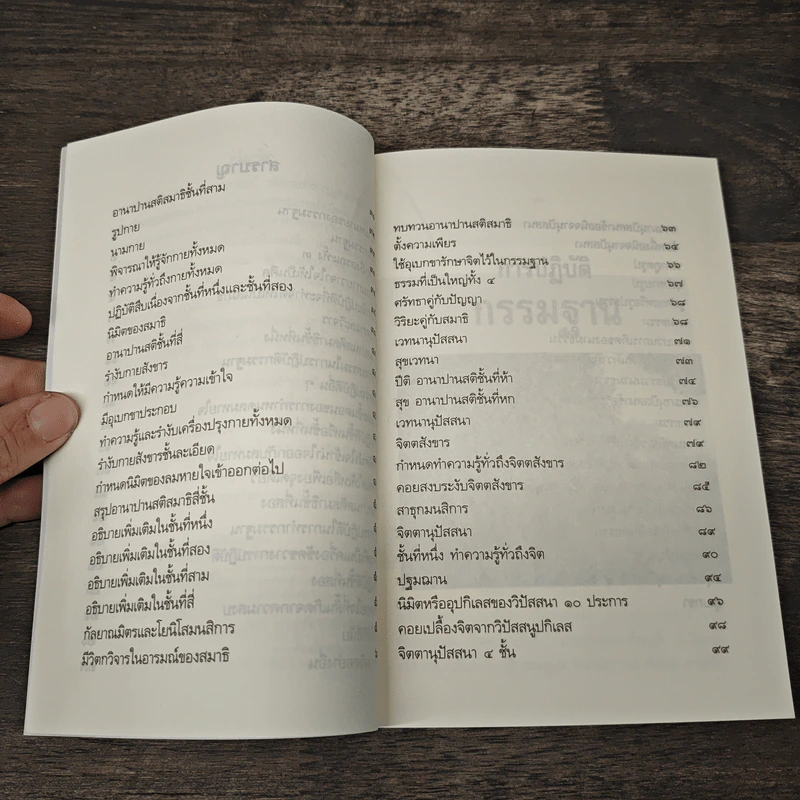 อานาปานสติสมาธิชั้นที่สาม
รูปกาย
นามกาย
พิจารณาให้รู้จักกายทั้งหมด
ทำความรู้ทั่วถึงกายทั้งหมด
ปฏิบัติสืบเนื่องจากชั้นที่หนึ่งและชั้นที่สอง
นิมิตของสมาธิ
อานาปานสติชั้นที่สี่
รำงับกายสังขาร
กำหนดให้มีความรู้ความเข้าใจ
มีอุเบกขาประกอบ
ทำความรู้และรำงับเครื่องปรุงกายทั้งหมด
รำงับกายสังขารชั้นละเอียด
กำหนดนิมิตของลมหายใจเข้าออกต่อไป
สรุปอานาปานสติสมาธิสี่ชั้น
อธิบายเพิ่มเติมในชั้นที่หนึ่ง
อธิบายเพิ่มเติมในชั้นที่สอง
อธิบายเพิ่มเติมในชั้นที่สาม
อธิบายเพิ่มเติมในชั้นที่สี่
กัลยาณมิตรและโยนิโสมนสิการ
มีวิตกวิจารในอารมณ์ของสมาธิ
ทบทวนอานาปานสติสมาธิ ๖๓
ตั้งความเพียร ๖๔
ใช้อุเบกขารักษาจิตไว้ในกรรมฐาน ๖๖
ธรรมที่เป็นใหญ่ทั้ง ๔ ๖๗
ศรัทธาคู่กับปัญญา ๖๘
วิริยะคู่กับสมาธิ ๖๘
เวทนานุปัสสนา ๗๑
สุขเวทนา ๗๓
ปีติ อานาปานสติชั้นที่ห้า ๗๔
สุข อานาปานสติชั้นที่หก ๗๖
เวทนานุปัสสนา ๗๙
จิตตสังขาร ๗๙
กำหนดทำความรู้ทั่วถึงจิตตสังขาร ๘๒
คอยสงบระงับจิตตสังขาร ๘๕
สาธุกมนสิการ ๘๖
จิตตานุปัสสนา ๘๙
ชั้นที่หนึ่ง ทำความรู้ทั่วถึงจิต ๙๐
ปฐมฌาน ๙๔
นิมิตหรืออุปกิเลสของวิปัสสนา ๑๐ ประการ ๙๖
คอยเปลื้องจิตจากวิปัสสนูปกิเลส ๙๘
จิตตานุปัสสนา ๔ ชั้น ๙๙